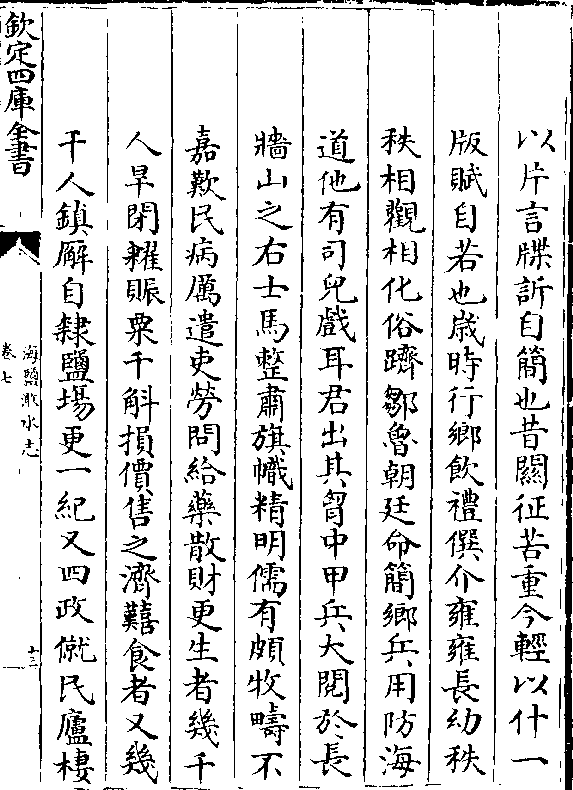 以片言牒訴自簡也昔關征苦重今輕以什一
版賦自若也歲時行鄉飲禮僎介雍雍長幼秩
秩相觀相化俗躋鄒魯朝廷命簡鄉兵用防海
道他有司兒戲耳君出其胷中甲兵大閱於長
牆山之右士馬整肅旗幟精明儒有頗牧疇不
嘉歎民病厲遣吏勞問給藥散財更生者幾千
人旱閉糴賑粟千斛損價售之濟囏食者又幾
千人鎮廨自隸鹽場更一紀又四政僦民廬棲
欽定四庫全書
海鹽澉水志
卷七
十三